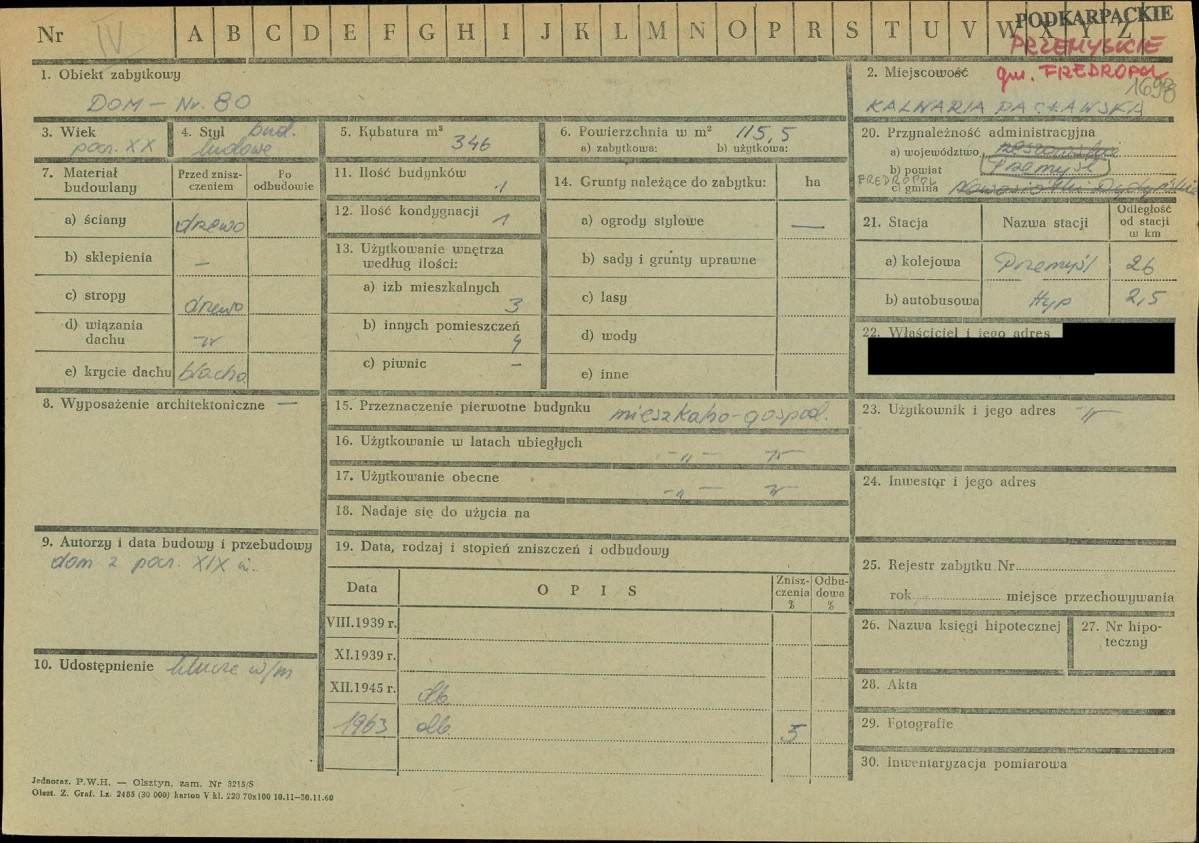 Nr IV A B C D E F G H I J K L M N O P R S T U V W X Y Z
PODKARPACKIE
PRZEMYSKIE
gm. FREDROPOL
1698
1. Obiekt zabytkowy
DOM – Nr. 80
2. Miejscowość
KALWARIA PACŁAWSKA
3. Wiek
pocz. XX
4. Styl bud.
ludowe
5. Kubatura m³
346
6. Powierzchnia w m² 115,5
a) zabytkowa: b) użytkowa:
7. Materiał budowlany
Przed zniszczeniem
Po odbudowie
a) ściany drewo
b) sklepienia –
c) stropy drzewo
d) wiązania dachu -"-
e) krycie dachu blacha
8. Wyposażenie architektoniczne –
9. Autorzy i data budowy i przebudowy
dom z pocz. XIX w.
10. Udostępnienie klucze w/m
11. Ilość budynków
1
12. Ilość kondygnacji
1
13. Użytkowanie wnętrza
według ilości:
a) izb mieszkalnych
3
b) innych pomieszczeń
4
c) piwnic –
14. Grunty należące do zabytku: ha
a) ogrody stylowe –
b) sady i grunty uprawne
c) lasy
d) wody
e) inne
15. Przeznaczenie pierwotne budynku mieszkalno-gospod.
16. Użytkowanie w latach ubiegłych
-"- -"-
17. Użytkowanie obecne
-"- -"-
18. Nadaje się do użycia na
19. Data, rodzaj i stopień zniszczeń i odbudowy
Data OPIS Zniszczenia % Odbudowa %
VIII.1939 r.
XI.1939 r.
XII.1945 r. db.
1963 db. 5
20. Przynależność administracyjna
a) województwo rzeszowskie
b) powiat Przemyśl
FREDROPOL
c) gmina Nowosiółki Dydyńskie
21. Stacja Nazwa stacji Odległość od stacji w km
a) kolejowa Przemyśl 26
b) autobusowa Hyp 2,5
22. Właściciel i jego adres
23. Użytkownik i jego adres -"-
24. Inwestor i jego adres
25. Rejestr zabytku Nr
rok miejsce przechowywania
26. Nazwa księgi hipotecznej
27. Nr hipoteczny
28. Akta
29. Fotografie
30. Inwentaryzacja pomiarowa
Jednoraz. P.W.H. — Olsztyn, zam. Nr 3215/S
Olszt. Z. Graf. Lz. 2485 (30 000) karton V kl. 220 70x100 10.11—30.11.60